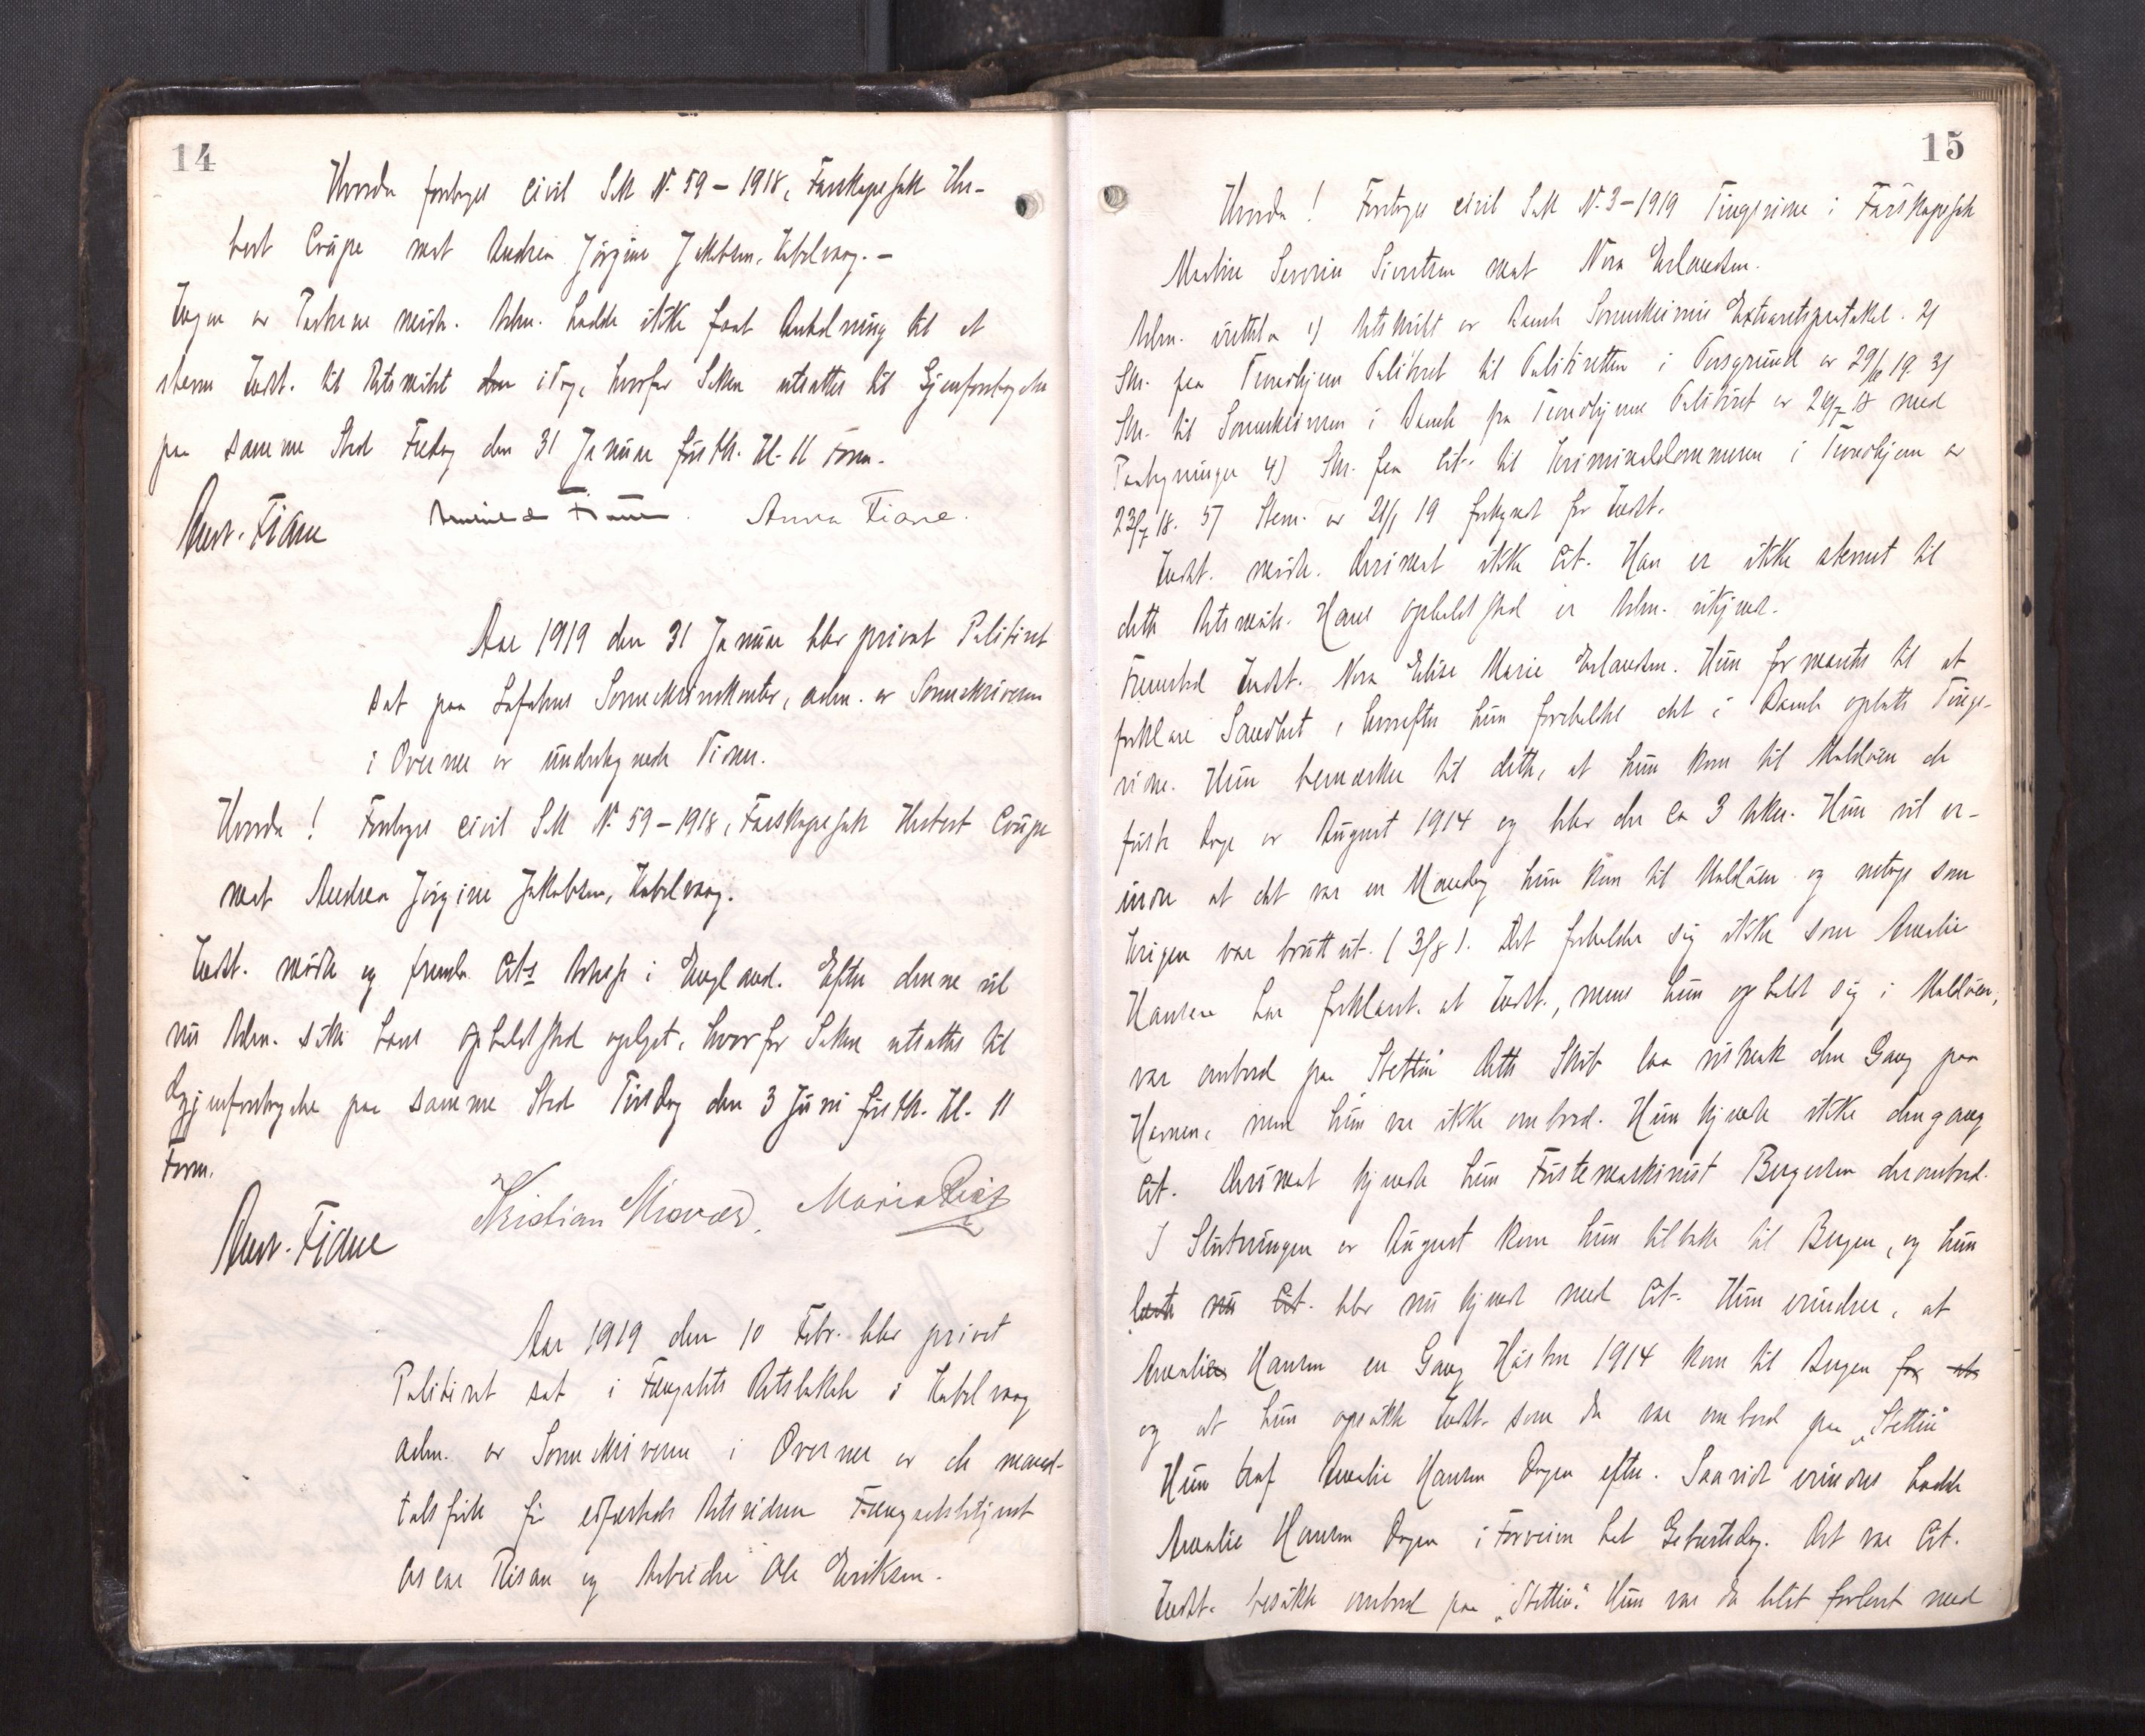 14
Hvorda foretoges civil Sak N. 59 – 1918, Farskapssak Her-
bert Coupe mot Andrea Jörgine Jakobsen, Kabelvaag. –
Ingen av Parterne mödte. Adm. hadde ikke faat Anledning til at
stevne Indst. til Retsmöte idag, hvorfor Saken utsattes til Gjenforetagelse
paa samme Sted Fredag den 31 Januar förstk. Kl. 11 Form.
Anst. Fiane Anna Fiane.
Aar 1919 den 31 Januar blev privat Politiret
sat paa Lofotens Sorenskriverkontor, adm. av Sorenskriveren
i Overvær av undertegnede Vidner.
Hvorda! Foretoges civil Sak N. 59 – 1918, Farskapssak Herbert Coupe
mot Andrea Jörgine Jakobsen, Kabelvaag.
Indst. mödte og freml. Cits Adresse i England. Efter denne vil
nu Adm. söke hans Opholdssted oplyst, hvorfor Saken utsattes til
Gjenforetagelse paa samme Sted Tirsdag den 3 Juni förstk. Kl. 11
Form.
Anst. Fiane Kristian Maria
Aar 1919 den 10 Febr. blev privat
Politiret sat i Fængslets Retslokale i Kabelvaag
adm. av Sorenskriveren i Overvær av de mand-
talsförte för edfæstede Retsvidner Fængselsbetjent
Oscar Risan og Arbeider Ole Eriksen.
15
Hvorda! Foretoges civil Sak N. 3 – 1919 Tingsvidne i Farskapssak
Martin Severin Sivertsen mot Nora Erlandsen.
Adm. fremla 1) Retsskrift av Extraretsprotokol. 2)
Skr. fra Trondhjems Politiret til Politiretten i Porsgrund av 19. 3)
Skr. til Sorenskriveren i fra Trondhjems Politiret av 18 med
Paategninger 4) Skr. fra Cit. til Kriminaldommeren i Trondhjem av
23/7 18. 5) Stevn. av 21/1 19 forkyndt for Indst.
Indst. mödte. Derimot ikke Cit. Han er ikke stevnet til
dette Retsmöte. Hans Opholdssted er Adm. ukjendt.
Fremstod Indst. Nora Elise Marie Erlandsen. Hun formantes til at
forklare Sandhet, hvorefter hun foreholdtes det i optatte Tings-
vidne. Hun bemærker til dette, at hun kom til Maldöen de
förste Dage av August 1914 og blev der ca 3 Uker. Hun vil er-
indre at det var en Mandag hun kom til Maldöen og netop som
Krigen var brutt ut. (3/8). Det forholder sig ikke som Amalie
Hansen har forklart, at Indst., mens hun opholdt sig i Maldöen,
var ombord paa "Stettin" Dette Skib laa vistnok den Gang paa
Havnen, men hun var ikke ombord. Hun kjendte ikke dengang
Cit. Derimot kjendte hun Förstemaskinist Bergersen derombord.
I Slutningen av August kom hun tilbake til Bergen, og hun
lærte nu Cit. blev nu kjendt med Cit. Hun erindrer, at
Amalie Hansen en Gang Hösten 1914 kom til Bergen for at
og at hun opsökte Indst. som da var ombord paa "Stettin"
Hun traf Amalie Hansen Dagen efter. Saavidt erindres hadde
Amalie Hansen Dagen i Forveien hat Geburtsdag. Det var Cit.
Indst. besökte ombord paa "Stettin". Hun var da blit forlovet med